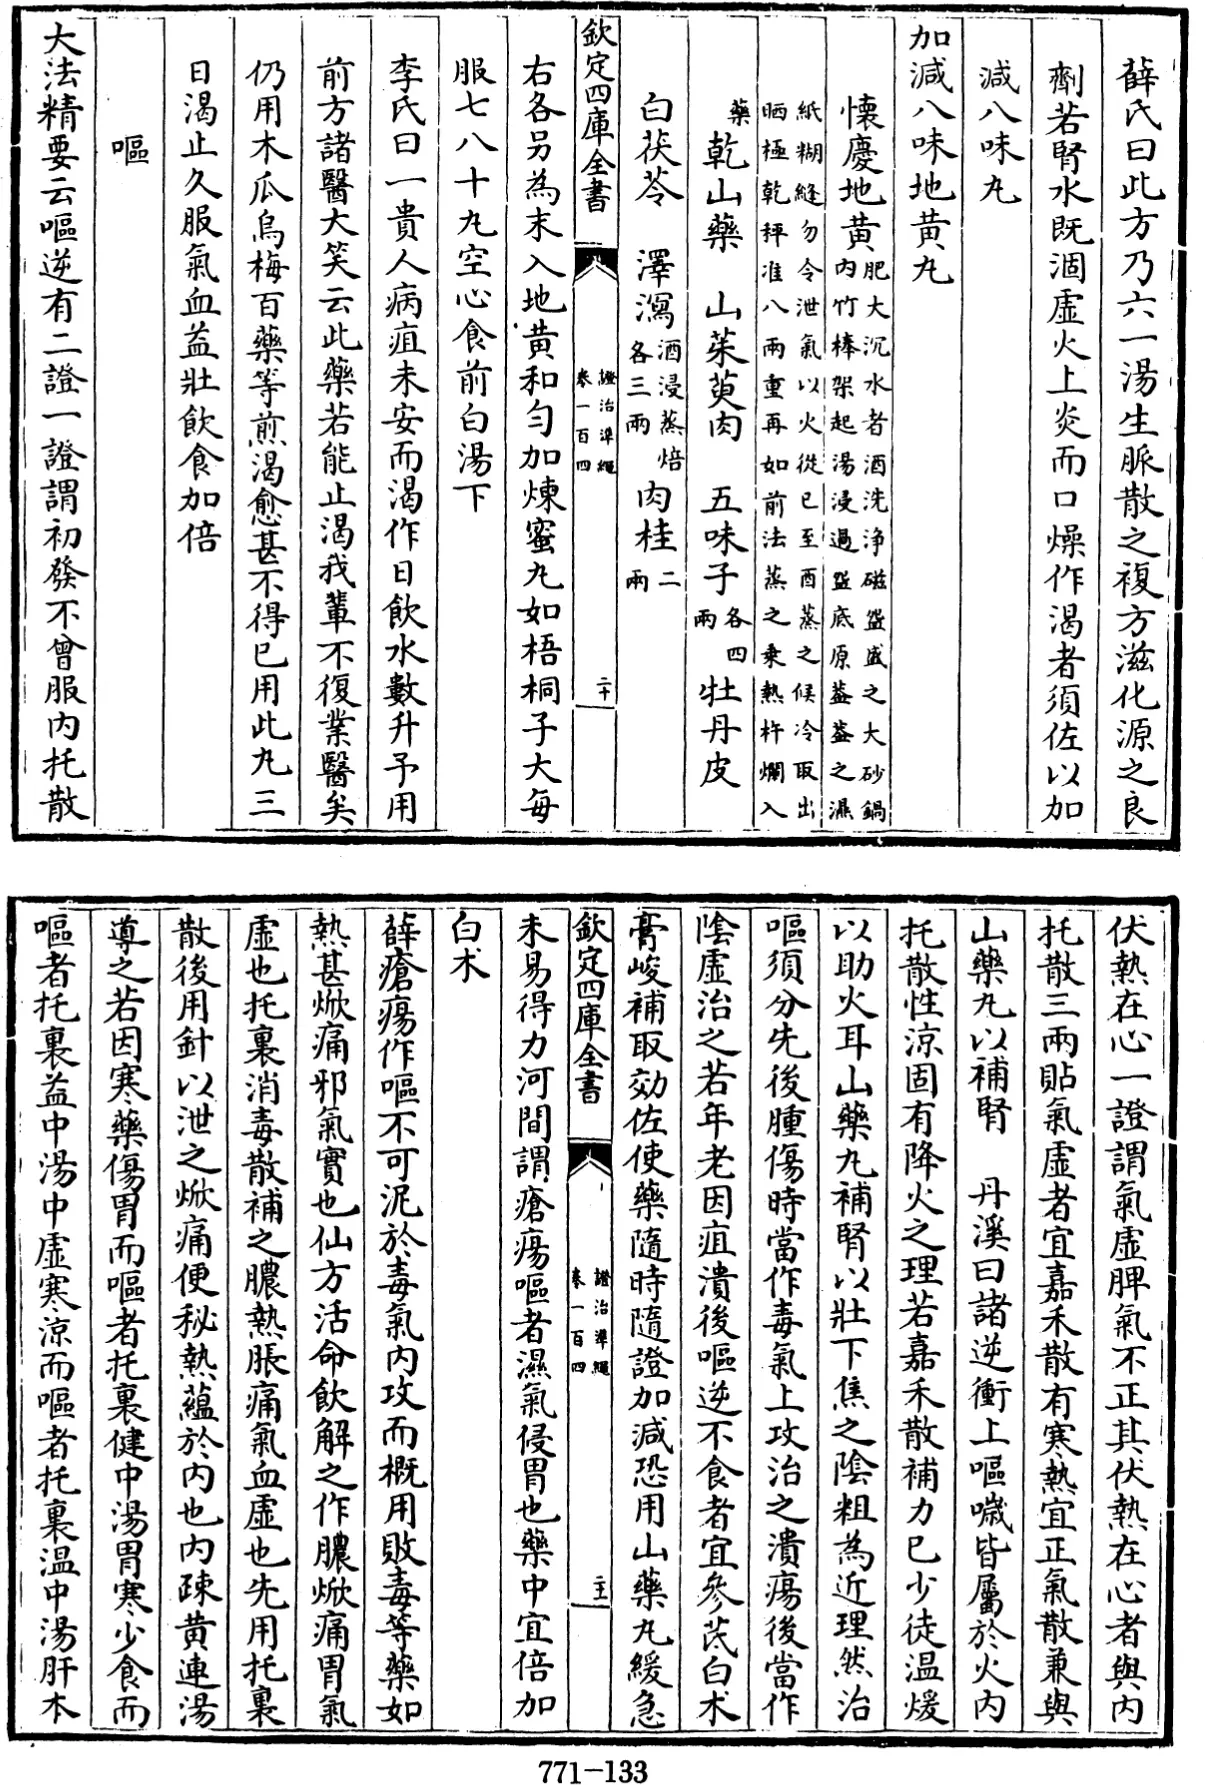 薛氏曰此方乃六一湯生脈散之複方滋化源之良
劑若腎水既涸虛火上炎而口燥作渴者須佐以加
減八味丸
加減八味地黄丸
懷慶地黄肥大沉水者酒洗浄磁盌盛之大砂鍋
内竹棒架起湯浸過盌底原葢葢之濕
紙糊縫勿令泄氣以火從已至酉蒸之候冷取出
晒極乾秤准八兩重再如前法蒸之乗熱杵爛入
藥 乾山藥 山茱萸肉 五味子各四兩 牡丹皮
白茯苓 澤瀉酒浸蒸焙各三兩 肉桂二兩
右各另為末入地黄和勻加煉蜜丸如梧桐子大每
服七八十丸空心食前白湯下
李氏曰一貴人病疽未安而渴作日飲水數升予用
前方諸醫大笑云此藥若能止渴我輩不復業醫矣
仍用木瓜烏梅百藥等煎渴愈甚不得已用此丸三
日渴止久服氣血益壯飲食加倍
嘔
大法精要云嘔逆有二證一證謂初發不曾服内托散
欽定四庫全書
證治準繩
卷一百四
二十
伏熱在心一證謂氣虛脾氣不正其伏熱在心者與内
托散三兩貼氣虛者宜嘉禾散有寒熱宜正氣散兼與
山藥丸以補腎 丹溪曰諸逆衝上嘔噦皆屬於火内
托散性涼固有降火之理若嘉禾散補力已少徒温煖
以助火耳山藥丸補腎以壯下焦之陰粗為近理然治
嘔須分先後腫傷時當作毒氣上攻治之潰瘍後當作
陰虛治之若年老因疽潰後嘔逆不食者宜參芪白术
膏峻補取効佐使藥隨時隨證加減恐用山藥丸緩急
未易得力河間謂瘡瘍嘔者濕氣侵胃也藥中宜倍加
白术
薛瘡瘍作嘔不可泥於毒氣内攻而概用敗毒等藥如
熱甚焮痛邪氣實也仙方活命飲解之作膿焮痛胃氣
虛也托裏消毒散補之膿熱脹痛氣血虛也先用托裏
散後用針以泄之焮痛便秘熱藴於内也内疎黄連湯
導之若因寒藥傷胃而嘔者托裏健中湯胃寒少食而
嘔者托裏益中湯中虛寒涼而嘔者托裏温中湯肝木
欽定四庫全書
證治準繩
卷一百四
二十一
771-133